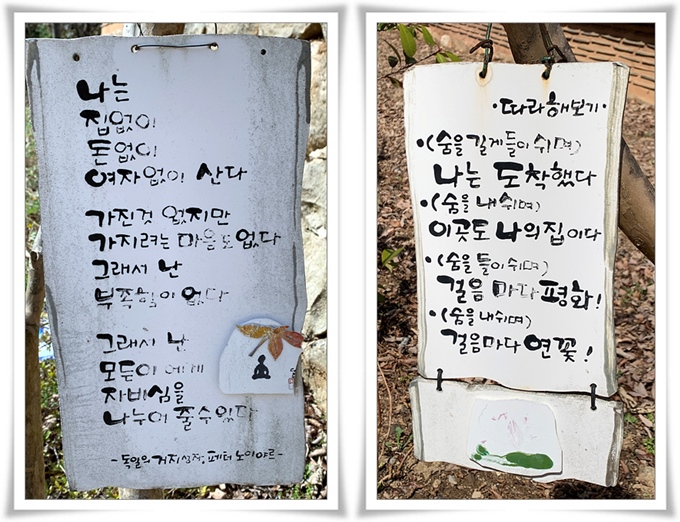 나는
집없이
돈없이
여자없이 산다
가진것 없지만
가지려는 마음도없다
그래서 난
부족함이 없다
그래서 난
모든이에게
자비심을
나누어 줄수있다
-독일의 거지성자, 페터 노이야르-
·따라해보기·
·(숨을 길게들이 쉬며)
나는 도착했다
·(숨을 내쉬며)
이곳도 나의집이다
·(숨을 들이쉬며)
걸음 마다 평화!
·(숨을 내쉬며)
걸음마다 연꽃!